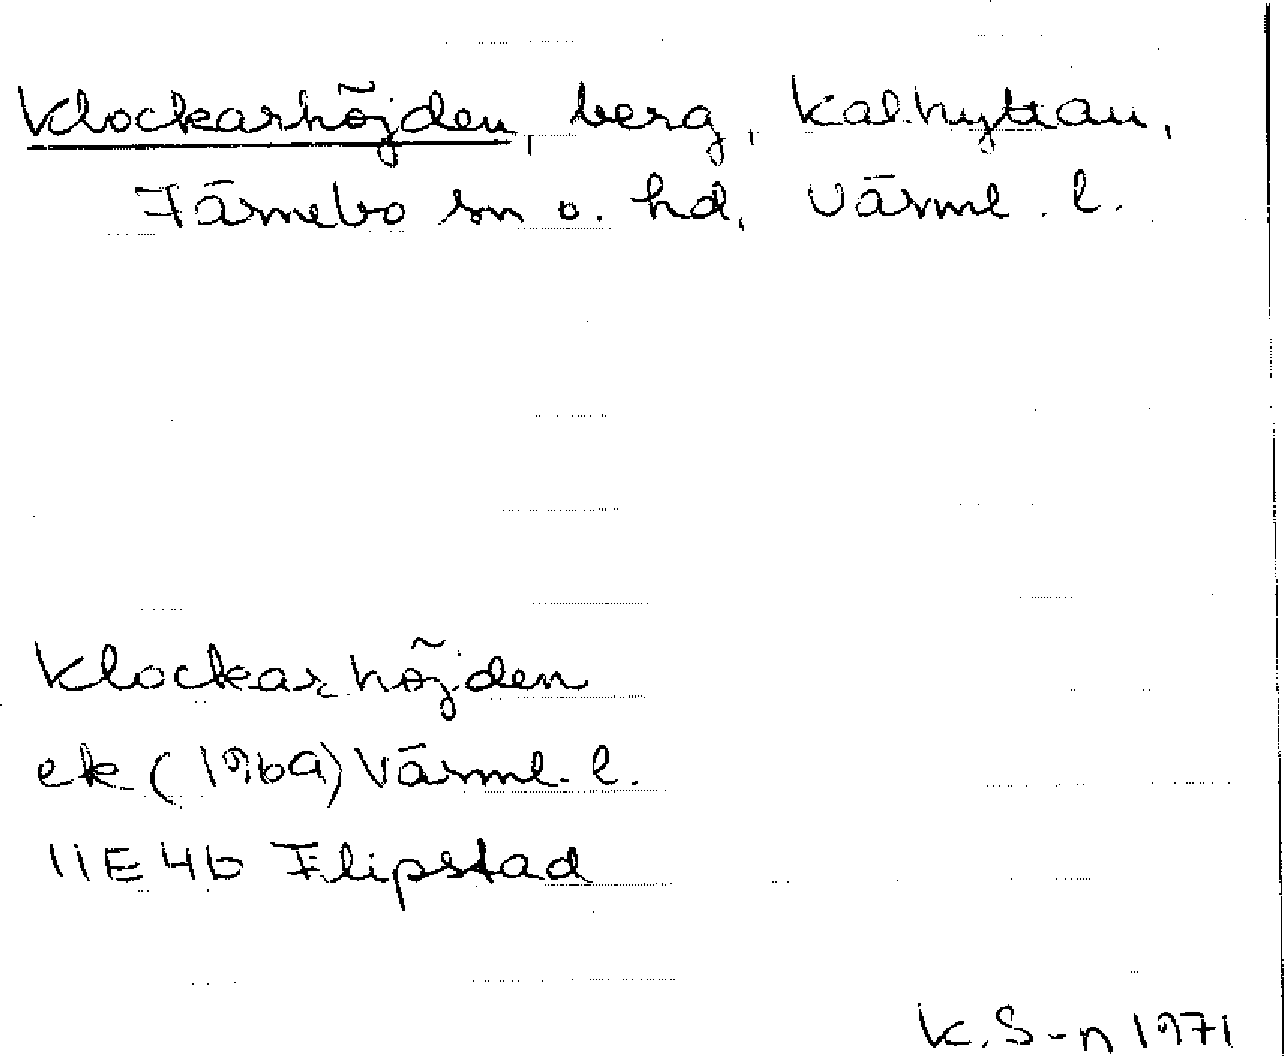 Klockarhöjden, berg, Kalhyttan,
Färnebo sn o. hd, Värml. l.
Klockarhöjden
ek (1969) Värml. l.
11E4b Flipstad
K. S-n 1971